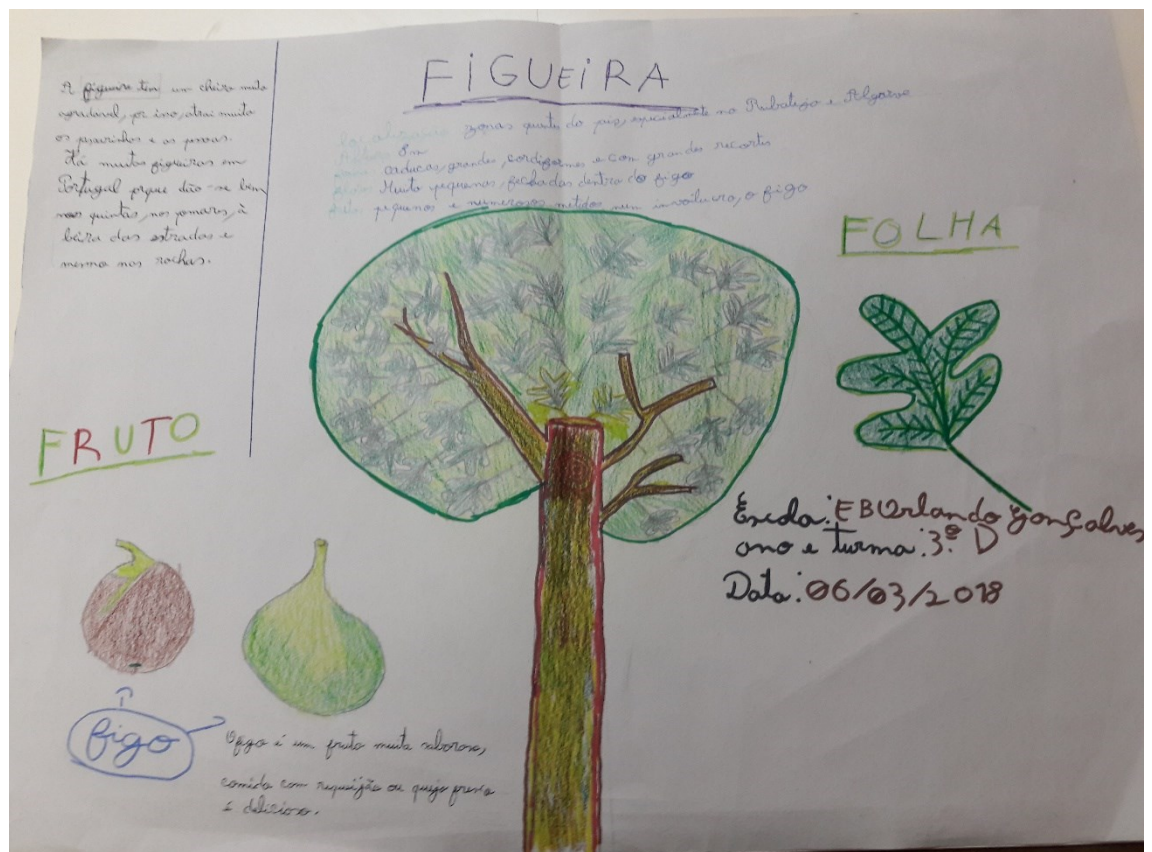 FIGUEIRA
A figueira tem um cheiro muito
agradável, por isso, atrai muito
os passarinhos e as pessoas.
Há muitas figueiras em
Portugal porque dão-se bem
nas quintas, nos pomares, à
beira das estradas e
mesmo nas rochas.
Localização: zonas quentes do país, especialmente no Ribatejo e Algarve
8m
caducas, grandes, cordiformes e com grandes recortes
Muito pequenas, fechadas dentro do figo
pequenos e numerosos, metidos num invólucro, o figo
FOLHA
FRUTO
Escola: EB Orlando Gonçalves
ano e turma: 3º D
Data: 06/03/2018
figo
O figo é um fruto muito saboroso,
comido com requeijão ou queijo fresco
é delicioso.